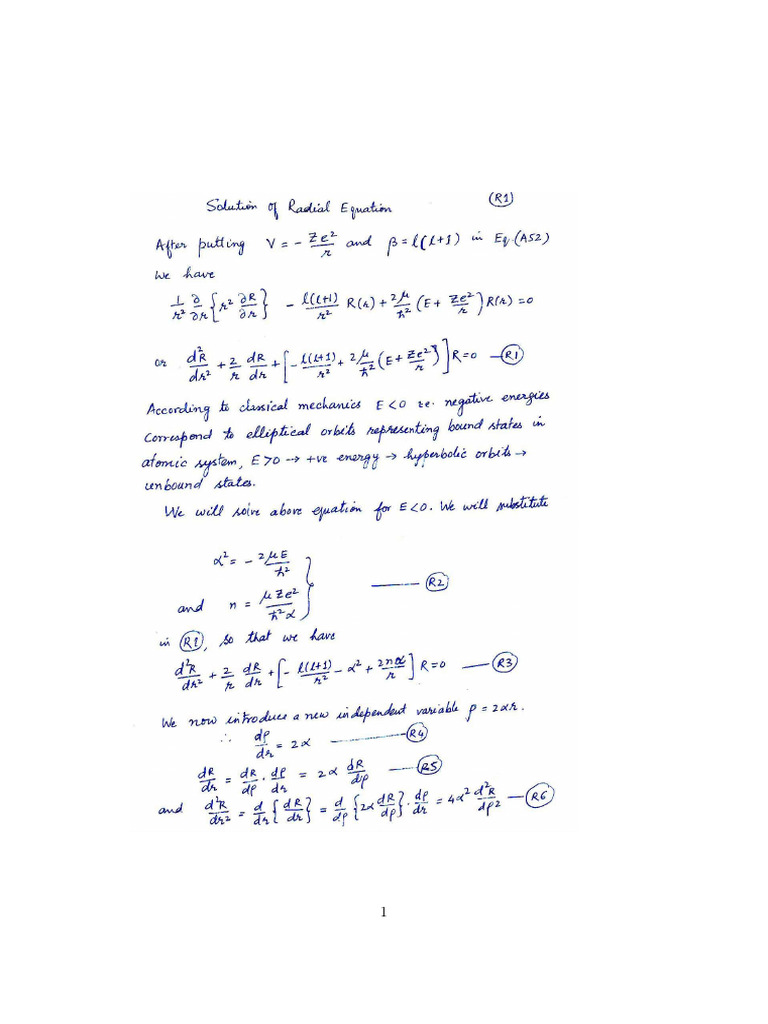 Solution of Radial Equation (R1)
After putting V = - Ze²/r and β = l(l+1) in Eq.(A52)
We have
1/r² ∂/∂r {r² ∂R/∂r} - l(l+1)/r² R(r) + 2μ/ħ² (E + Ze²/r) R(r) = 0
or d²R/dr² + 2/r dR/dr + [- l(l+1)/r² + 2μ/ħ² (E + Ze²/r)] R = 0 — (R1)
According to classical mechanics E<0 i.e. negative energies
correspond to elliptical orbits representing bound states in
atomic system, E>0 → +ve energy → hyperbolic orbits →
unbound states.
We will solve above equation for E<0. We will substitute
α² = - 2μE/ħ²
and n = μZe²/ħ²α } — (R2)
in (R1), so that we have
d²R/dr² + 2/r dR/dr + [- l(l+1)/r² - α² + 2nα/r] R = 0 — (R3)
We now introduce a new independent variable ρ = 2αr.
∴ dρ/dr = 2α — (R4)
dR/dr = dR/dρ · dρ/dr = 2α dR/dρ — (R5)
and d²R/dr² = d/dr {dR/dr} = d/dρ {2α dR/dρ} · dρ/dr = 4α² d²R/dρ² — (R6)
1